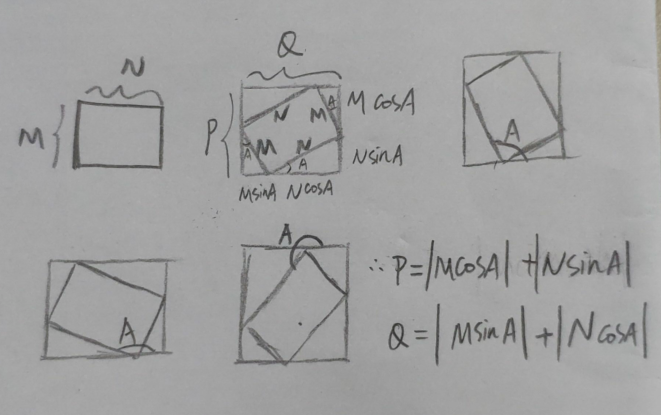 N
M
Q
P
N
M
M
N
A
A
A
M cosA
NsinA
MsinA NcosA
A
A
A
∴ P=|McosA|+|NsinA|
Q=|MsinA|+|NcosA|